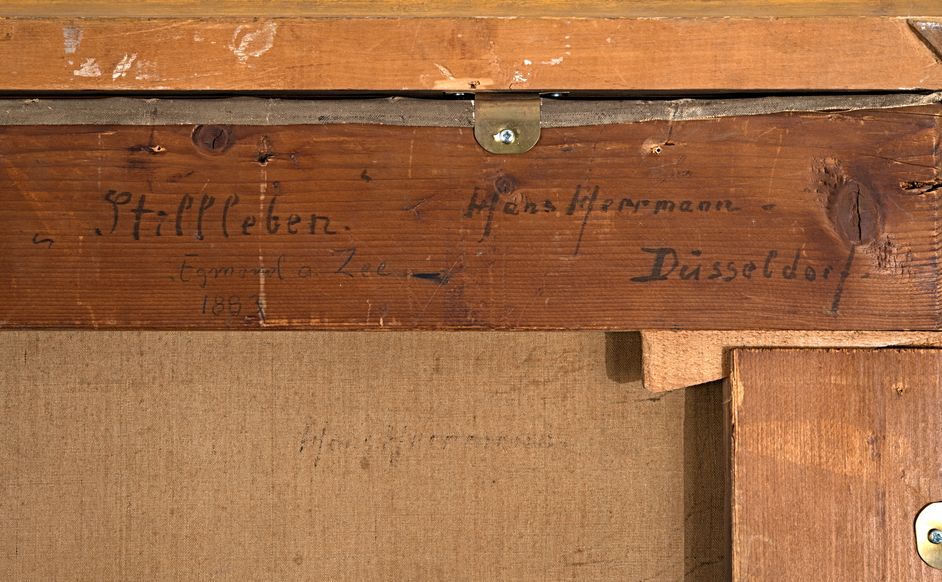 Stillleben.
Hans Herrmann
Egmond a Zee
Düsseldorf.
1883
Hans Herrmann